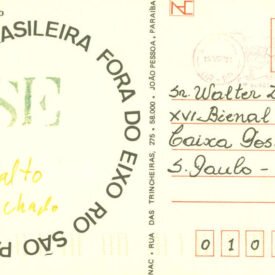 ASILEIRA FORA DO EIXO RIO SÃO PA
SE
alto
chado
NAC • RUA DAS TRINCHEIRAS, 275 • 58.000 • JOÃO PESSOA, PARAÍBA
Sr. Walter Z
XVI Bienal
Caixa Pos
S. Paulo -
0 1 0